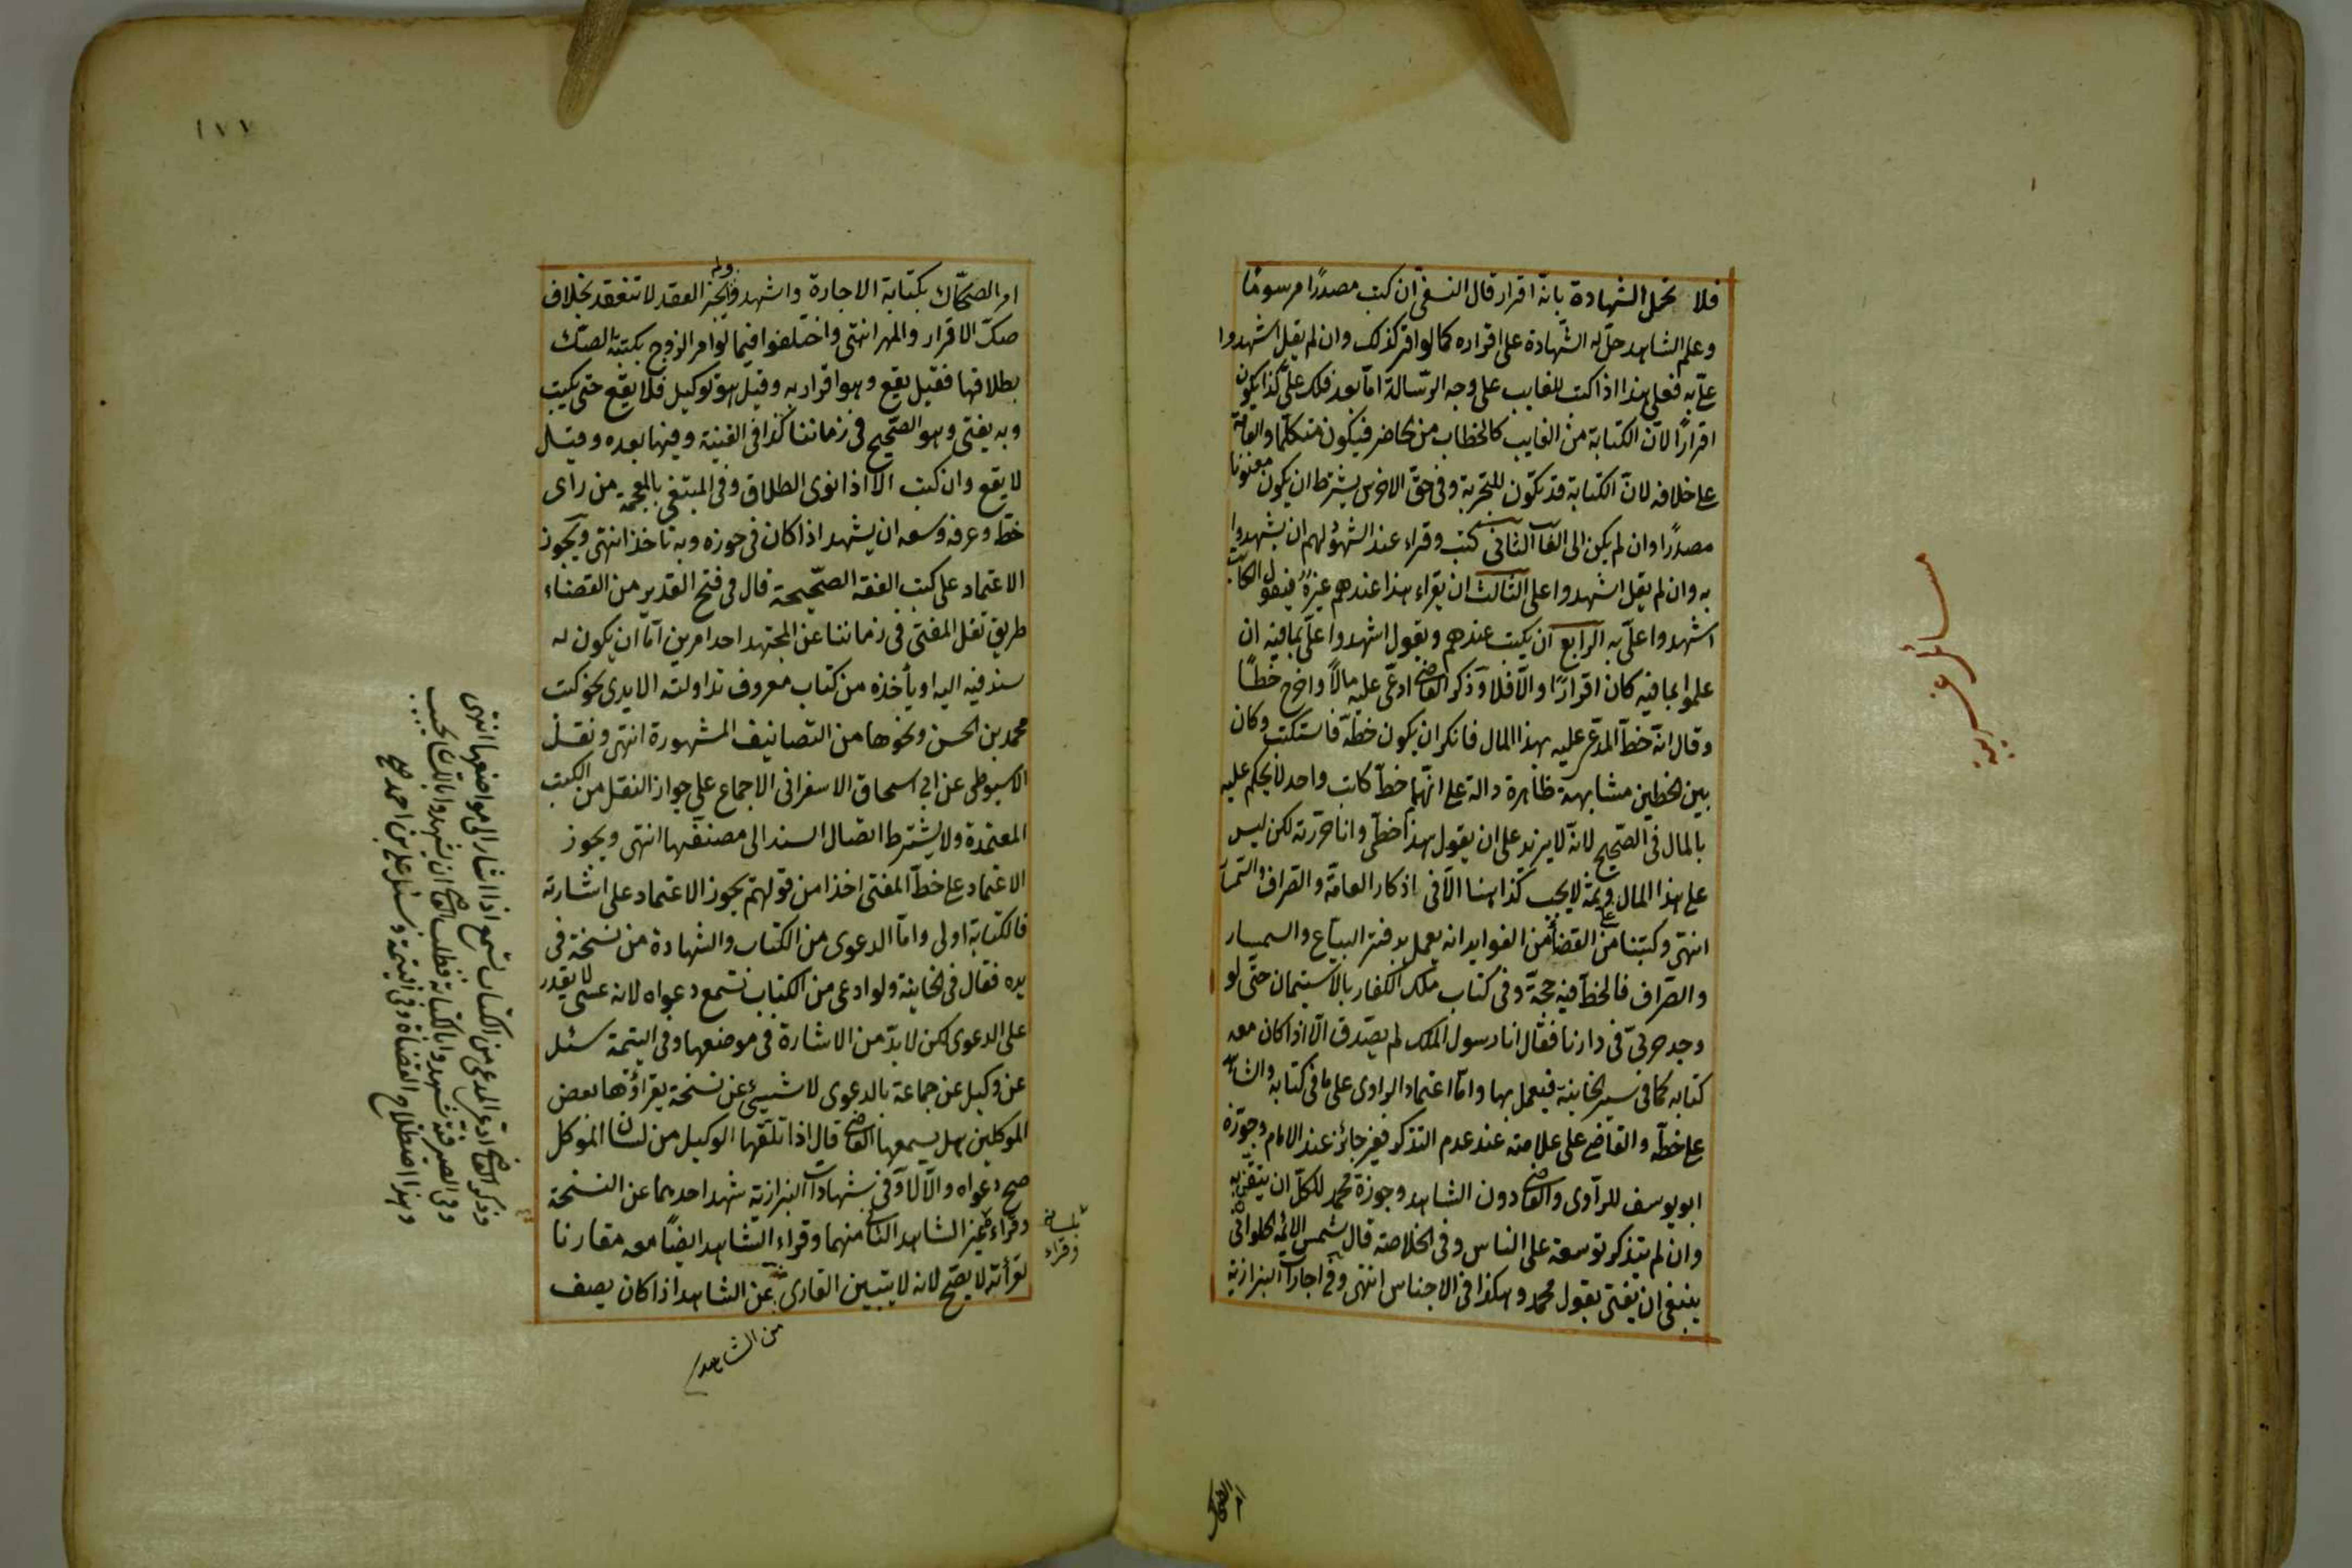 فلا تحل الشهادة بانه اقرار قال النسفى ان كتب مصدرًا مرسومًا
وعلم الشاهد حل له الشهادة على اقراره كما لو اقر كذلك وان لم يقل اشهدوا
علىّ به فعلى هذا اذا كتب للغايب على وجه الرسالة اما بعد فلك علىّ كذا يكون
اقرارًا لان الكتابة من الغايب كالخطاب من الحاضر فيكون متكلما والعامة
على خلافه لان الكتابة قد تكون للتجربة وفى حق الاخرس يشترط ان يكون معنونا
مصدرًا وان لم يكن الى الغايب الثانى كتب وقراء عند الشهود لهم ان يشهدوا
به وان لم يقل اشهدوا على الثالث ان يقراء هذا عندهم غيره فيقول الكاتب
اشهدوا علىّ به الرابع ان يكتب عندهم ويقول اشهدوا علىّ بما فيه ان
علموا بما فيه كان اقرارًا والا فلا وذكر القاضى ادعى عليه مالًا واخرج خطًا
وقال انه خط المدعى عليه بهذا المال فانكر ان يكون خطه فاستكتب وكان
بين الخطين مشابهة ظاهرة دالة على انهما خط كاتب واحد لا يحكم عليه
بالمال فى الصحيح لانه لا يزيد على ان يقول هذا خطى وانا حررته لكن ليس
على هذا المال وثمة لا يجب كذا هنا الا فى اذكار العامة والصراف والسمسار
انتهى وكتبنا من القضا من الفوايد انه يعمل بدفتر البياع والسمسار
والصراف فالخط فيه حجة وفى كتاب ملك الكفار بالاستيمان حتى لو
وجد حربى فى دارنا فقال انا رسول الملك لم يصدق الا اذا كان معه
كتابه كما فى سير الخانية فيعمل بها واما اعتماد الراوى على ما فى كتابه والشاهد
على خطه والقاضى على علامته عند عدم التذكر فغير جائز عند الامام وجوزه
ابو يوسف للراوى والقاضى دون الشاهد وجوزه محمد للكل ان يتقن به
وان لم يتذكر توسعة على الناس وفى الخلاصة قال شمس الائمة الحلوانى
ينبغى ان يفتى بقول محمد وهكذا فى الاجناس انتهى وفى اجارات البزازية
امر الصكاك
مسائل غريبه
١٧٧
امر الصكاك بكتابة الاجارة واشهد ولم يجز العقد لا تنعقد بخلاف
صك الاقرار والمهر انتهى واختلفوا فيما لو امر الزوج بكتبة الصك
بطلاقها فقيل يقع وهو اقرار به وقيل هو توكيل فلا يقع حتى يكتب
وبه يفتى وهو الصحيح فى زماننا كذا فى القنية وفيها بعده وقيل
لا يقع وان كتب الا اذا نوى الطلاق وفى المبتغى بالمعجمة من راى
خطه وعرفه وسعه ان يشهد اذا كان فى حوزه وبه ناخذ انتهى ويجوز
الاعتماد على كتب الفقه الصحيحة قال فى فتح القدير من القضاء
طريق نقل المفتى فى زماننا عن المجتهد احد امرين اما ان يكون له
سند فيه اليه او يأخذه من كتاب معروف تداولته الايدى نحو كتب
محمد بن الحسن ونحوها من التصانيف المشهورة انتهى ونقل
الاسيوطى عن ابى اسحاق الاسفرانى الاجماع على جواز النقل من الكتب
المعتمدة ولا يشترط اتصال السند الى مصنفها انتهى ويجوز
الاعتماد على خط المفتى اخذا من قولهم يجوز الاعتماد على اشارته
فالكتابة اولى واما الدعوى من الكتاب والشهادة من نسخة فى
يده فقال فى الخانية ولو ادعى من الكتاب تسمع دعواه لانه عسى لا يقدر
على الدعوى لكن لا بد من الاشارة فى موضعها وفى اليتيمة سئل
عن وكيل عن جماعة بالدعوى لاشيىء عن نسخة يقراؤها بعض
الموكلين هل يسمعها القاضى قال اذا تلقها الوكيل من لسان الموكل
صح دعواه والا لا وفى شهادات البزازية شهد احدهما عن النسخة
وقراء غير الشاهد الثانى منهما وقراء الشاهد ايضًا معه مقارنا
لقرأته لا يصح لانه لا يتبين القارى عن الشاهد اذا كان يصف
بلسانه
وقراء
من الشاهد
وذكر القاضى ادعى المدعى من الكتاب تسمع اذا اشار الى مواضعها انتهى
وفى الصيرفية شهدوا بالكتابة فطلب القاضى ان يشهدوا باللسان لا يجب
وهذا اصطلاح القضاة وفى اليتيمة وسئل على بن احمد